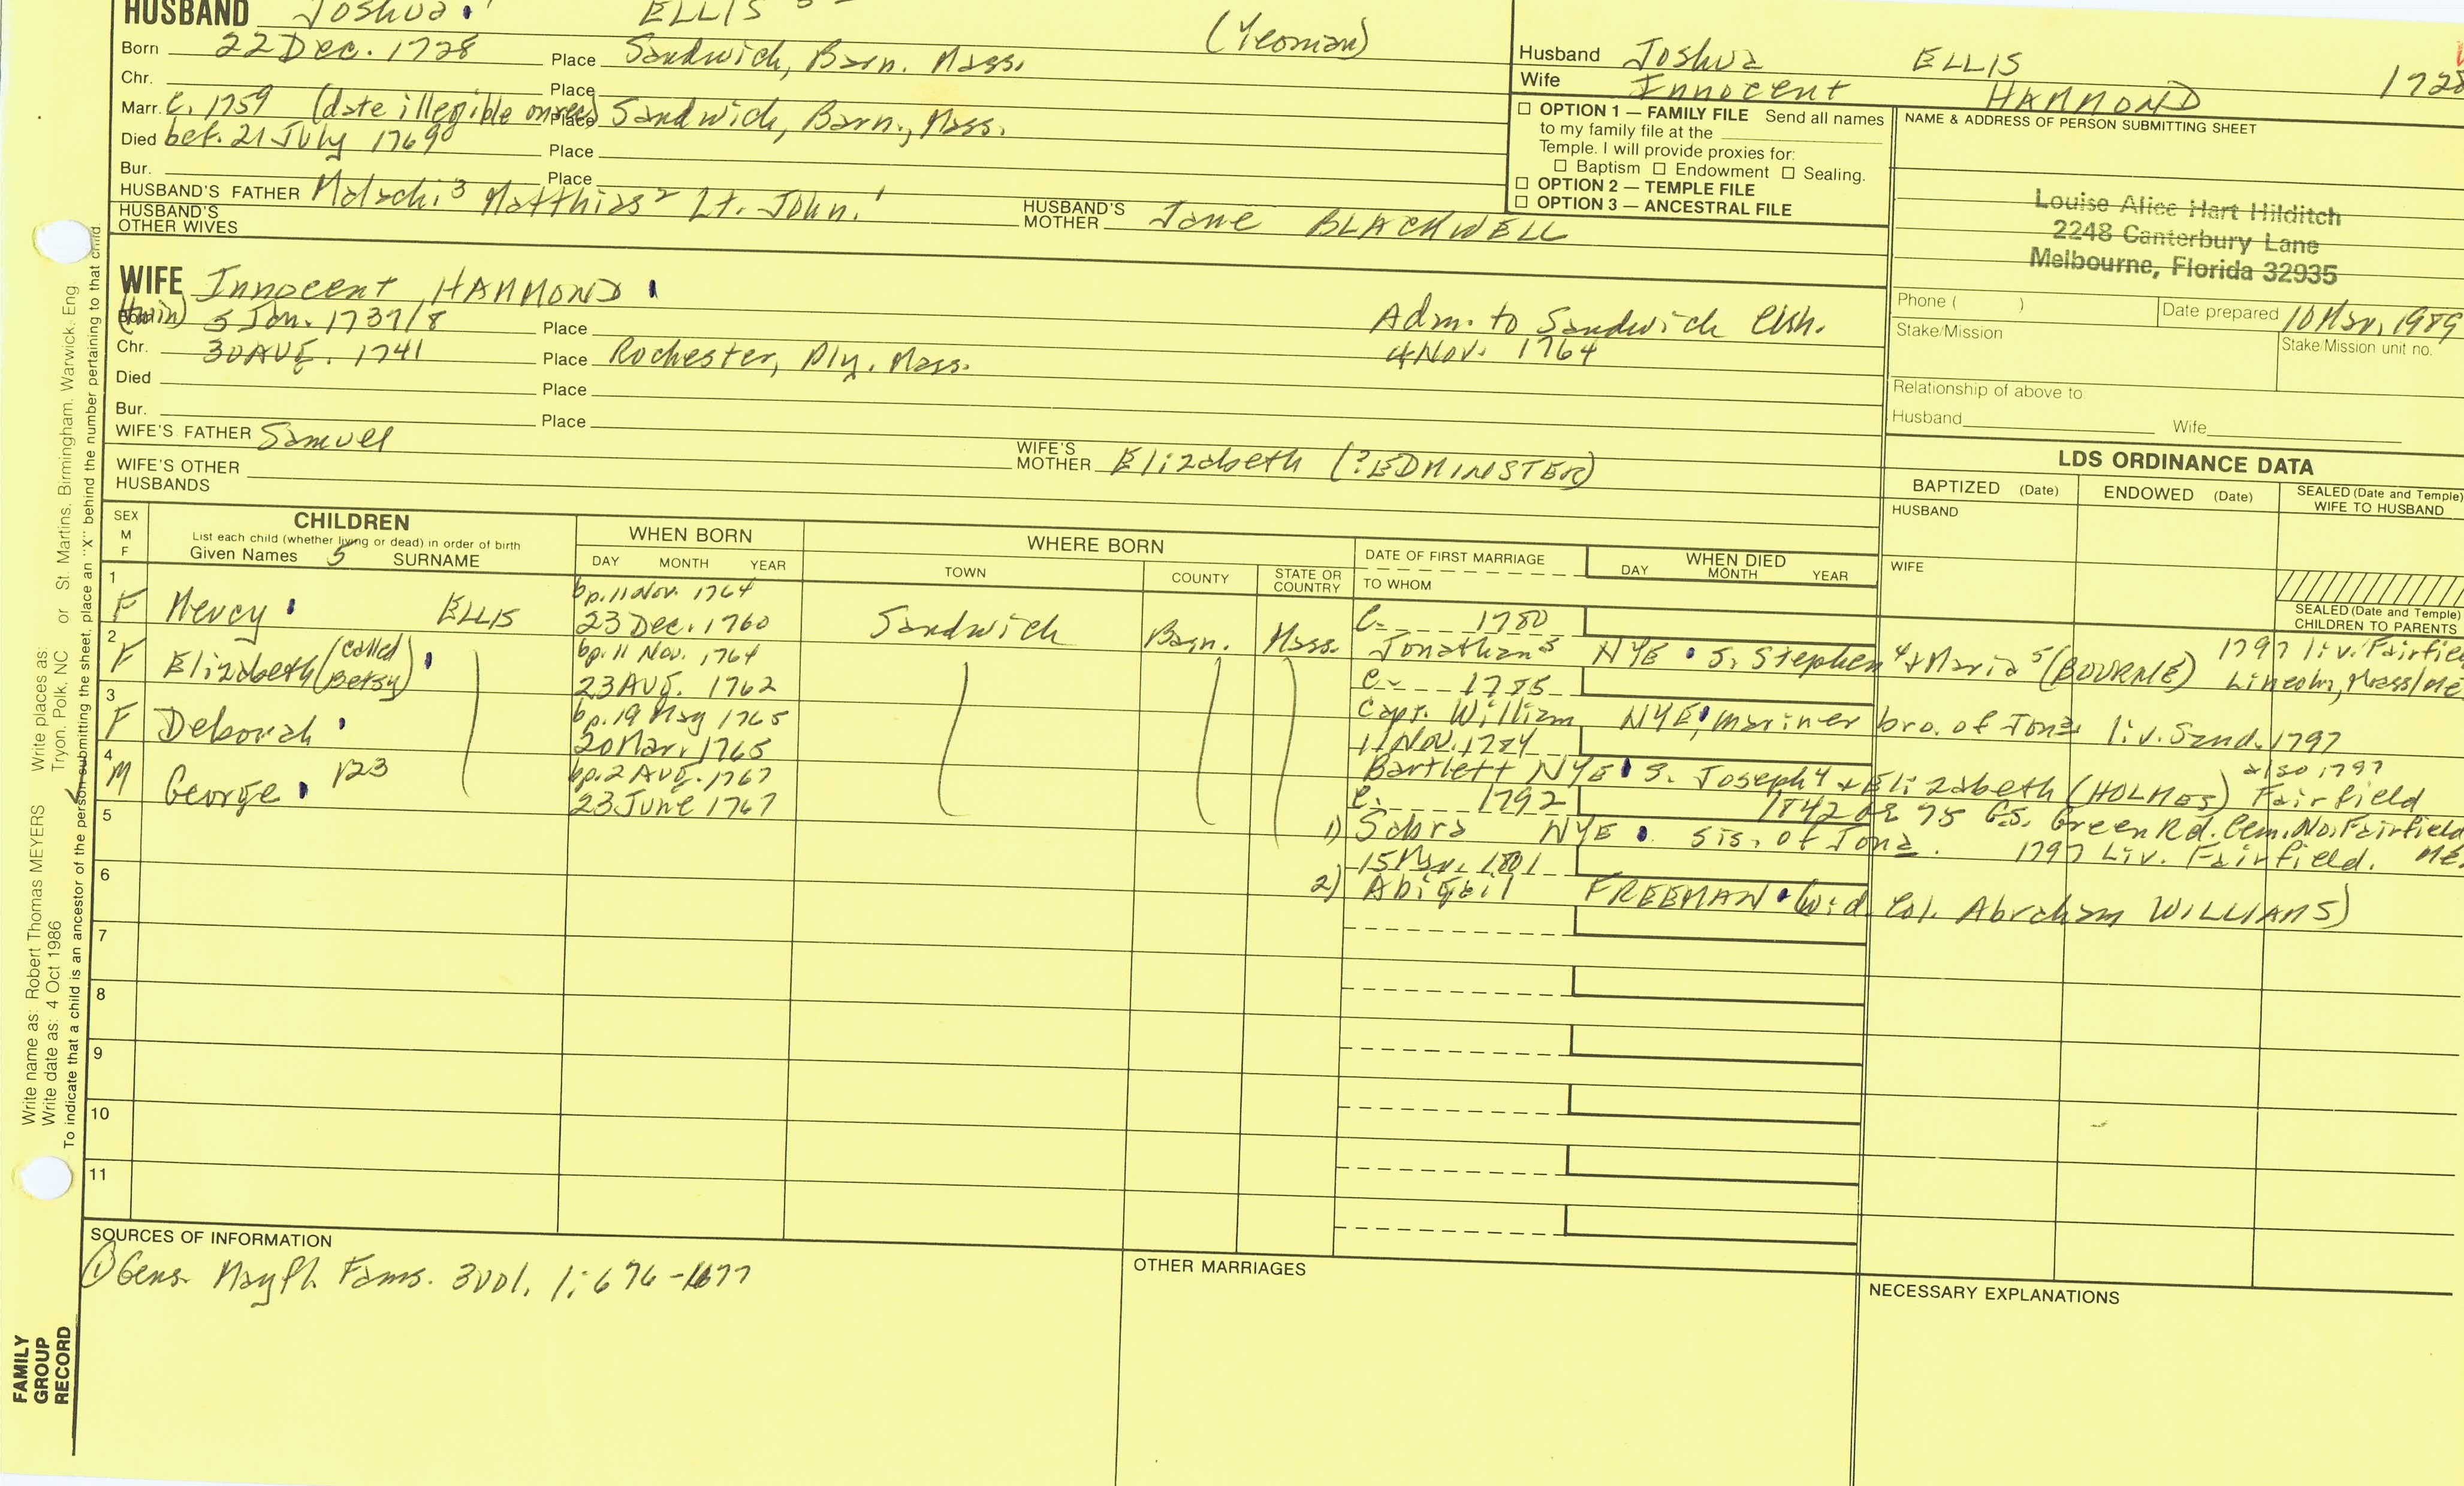 HUSBAND Joshua ELLIS
Born 22 Dec. 1728 Place Sandwich, Barn. Mass. (Yeoman)
Chr. Place
Marr. c. 1759 (date illegible on rec) Place Sandwich, Barn., Mass.
Died bef. 21 July 1769 Place
Bur. Place
HUSBAND'S FATHER Malachi³ Matthias² Lt. John.¹ HUSBAND'S MOTHER Jane BLACKWELL
HUSBAND'S OTHER WIVES
WIFE Innocent HAMMOND
(twin) Born 5 Jan. 1737/8 Place Adm. to Sandwich Chh.
Chr. 30 AUG. 1741 Place Rochester, Ply. Mass. 4 Nov. 1764
Died Place
Bur. Place
WIFE'S FATHER Samuel WIFE'S MOTHER Elizabeth (?EDMINSTER)
WIFE'S OTHER HUSBANDS
Husband Joshua ELLIS 1728
Wife Innocent HAMMOND
☐ OPTION 1 — FAMILY FILE Send all names
to my family file at the
Temple. I will provide proxies for:
☐ Baptism ☐ Endowment ☐ Sealing.
☐ OPTION 2 — TEMPLE FILE
☐ OPTION 3 — ANCESTRAL FILE
NAME & ADDRESS OF PERSON SUBMITTING SHEET
Louise Alice Hart Hilditch
2248 Canterbury Lane
Melbourne, Florida 32935
Phone ( ) Date prepared 10 Mar, 1989
Stake/Mission Stake/Mission unit no.
Relationship of above to
Husband Wife
LDS ORDINANCE DATA
BAPTIZED (Date) ENDOWED (Date) SEALED (Date and Temple)
WIFE TO HUSBAND
HUSBAND
WIFE
SEALED (Date and Temple)
CHILDREN TO PARENTS
SEX
M
F
CHILDREN
List each child (whether living or dead) in order of birth
Given Names 5 SURNAME
WHEN BORN
DAY MONTH YEAR
WHERE BORN
TOWN COUNTY STATE OR COUNTRY
DATE OF FIRST MARRIAGE
TO WHOM
WHEN DIED
DAY MONTH YEAR
1 bp. 11 Nov. 1764
F Mercy ELLIS 23 Dec. 1760 Sandwich Barn. Mass. C. 1780
Jonathan⁵ NYE S. Stephen⁴ + Maria⁵ (BOURNE) 1797 liv. Fairfie
Lincoln, Mass/Me
2 bp. 11 Nov. 1764
F Elizabeth (called Betsy) 23 AUG. 1762 C. 1785
Capt. William NYE, mariner bro. of Jona liv. Sand. 1797
3 bp. 19 May 1765
F Deborah 20 Mar, 1765 11 Nov. 1784
Bartlett NYE S. Joseph⁴ + Elizabeth (HOLMES) Fairfield
also 1797
4 bp. 2 AUG. 1767
M George 23 June 1767 C. 1792
1842 ae 75 G.S. Green Rd. Cem. No. Fairfield
1) NYE sis. of Jona. 1797 Liv. Fairfield. Me.
5
15 Mar. 1801
2) Abigail FREEMAN (wid. Col. Abraham WILLIAMS)
6
7
8
9
10
11
SOURCES OF INFORMATION
① Gens. Mayfl. Fams. 3 vol. 1:676-677
OTHER MARRIAGES
NECESSARY EXPLANATIONS
Write name as: Robert Thomas MEYERS Write places as: St. Martins, Birmingham, Warwick, Eng.
Write date as: 4 Oct 1986 Tryon, Polk, NC or
To indicate that a child is an ancestor of the person submitting the sheet, place an "X" behind the number pertaining to that child
FAMILY
GROUP
RECORD